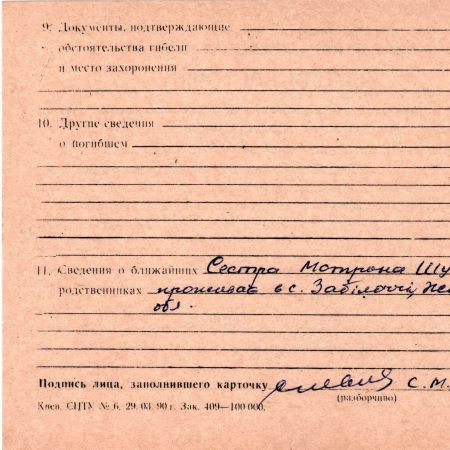 9. Документы, подтверждающие
обстоятельства гибели
и место захоронения
10. Другие сведения
о погибшем
11. Сведения о ближайших Сестра Мотрона Шу
родственниках проживає в с. Забілоччі,
обл.
Подпись лица, заполнившего карточку С. М.
(разборчиво)
Киев. СПТУ № 6. 29. 03. 90 г. Зак. 409—100 000.